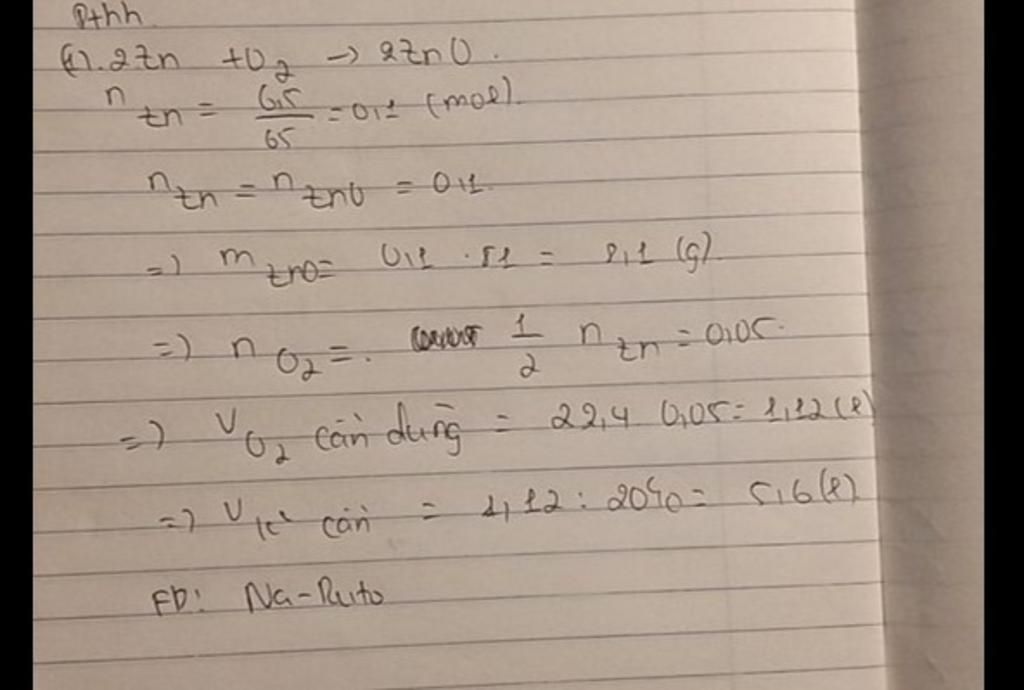 Pthh
a). 2Zn + O2 → 2ZnO.
n Zn = 6,5/65 = 0,1 (mol).
n Zn = n ZnO = 0,1.
=) m ZnO = 0,1 . 81 = 8,1 (g).
=) n O2 =. 1/2 n Zn = 0,05.
=) V O2 cần dùng = 22,4 0,05 = 1,12 (l)
=) V kk cần = 1,12 : 20% = 5,6 (l)
FB: Na-Ruto